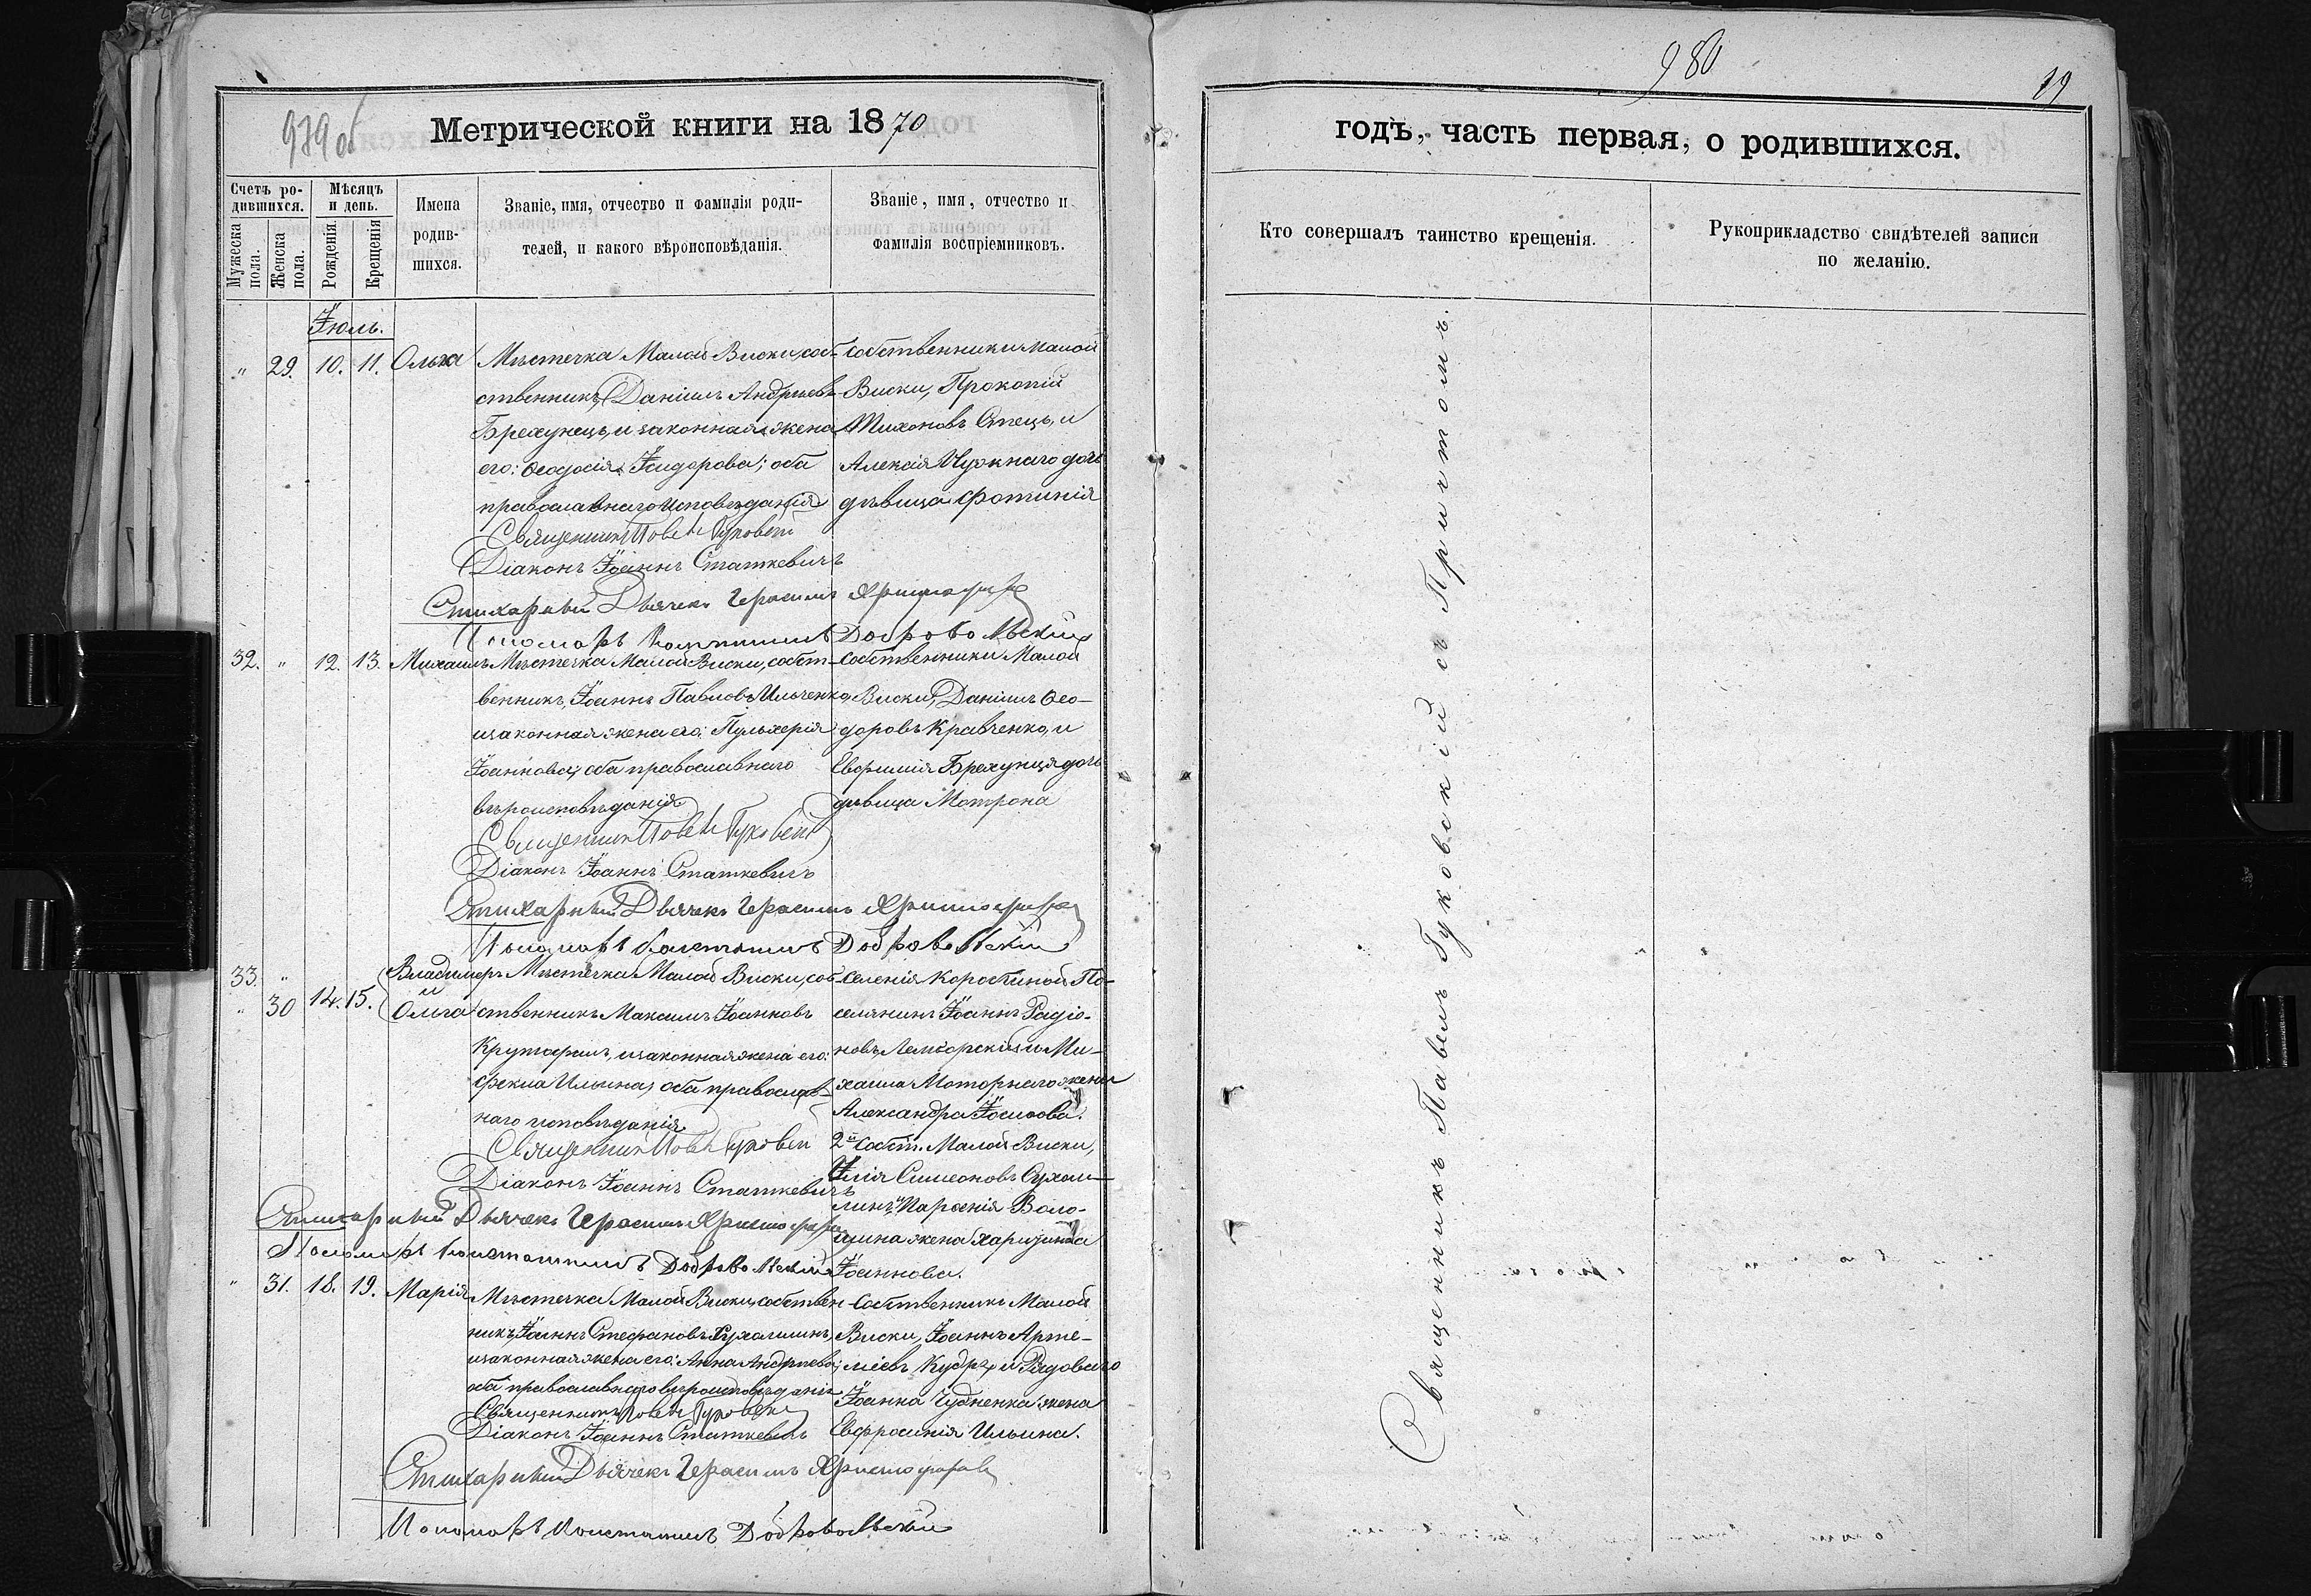 979 об
Метрической книги на 1870
Счетъ ро-
дившихся.
Мѣсяцъ
и день.
Мужеска
пола.
Женска
пола.
Рожденія.
Крещенія
Имена
родив-
шихся.
Званіе, имя, отчество и фамилія роди-
телей, и какого вѣроисповѣданія.
Званіе, имя, отчество и
фамилія воспріемниковъ.
Іюль.
" 29. 10. 11. Ольга
Мѣстечка Малой Виски, соб-
ственникъ, Даніилъ Андреевъ
Брехунецъ, и законная жена
его: Ѳеодосія Исидорова; оба
православнаго исповѣданія
собственники Малой
Виски, Прокопій
Тихоновъ Отецъ, и
Алексія дочь
дѣвица Фотинія
Священникъ Павелъ Гуковскій
Діаконъ Іоаннъ Статкевичъ
Стихарный Дьячекъ Герасимъ
Пономарь Константинъ Добровольскій
32. " 12. 13. Михаилъ
Мѣстечка Малой Виски, собст-
венникъ, Іоаннъ Павловъ Ильченко,
и законная жена его: Пульхерія
Іоаннова; оба православнаго
вѣроисповѣданія
Собственники Малой
Виски, Даніилъ Ѳео-
доровъ Кравченко, и
Евфимія Брехунця дочь
дѣвица Мотрона
Священникъ Павелъ Гуковскій
Діаконъ Іоаннъ Статкевичъ
Стихарный Дьячекъ Герасимъ
Пономарь Константинъ Добровольскій
33. "
" 30 14. 15.
Владимеръ
и
Ольга
Мѣстечка Малой Виски, соб-
ственникъ Максимъ Іоанновъ
и законная жена его:
Ѳекла Ильина, оба православ-
наго исповѣданія
Селенія Коробчиной По-
селянинъ Іоаннъ Радіо-
новъ и Ми-
хаила Моторнаго жена
Александра Іосифова.
2й Собств. Малой Виски,
Илія Симеоновъ Сухом-
линъ и Парѳенія Воло-
шина жена Харитина
Іоаннова.
Священникъ Павелъ Гуковскій
Діаконъ Іоаннъ Статкевичъ
Стихарный Дьячекъ Герасимъ
Пономарь Константинъ Добровольскій
" 31. 18. 19. Марія
Мѣстечка Малой Виски, собствен-
никъ, Іоаннъ Стефановъ Сухомлинъ,
и законная жена его: Анна Андреева;
оба православнаго вѣроисповѣданія
Собственникъ Малой
Виски, Іоаннъ Арте-
міевъ Кудря, и Рядоваго
Іоанна Чудненка жена
Евфросинія Ильина.
Священникъ Павелъ Гуковскій
Діаконъ Іоаннъ Статкевичъ
Стихарный Дьячекъ Герасимъ
Пономарь Константинъ Добровольскій
980
19
годъ, часть первая, о родившихся.
Кто совершалъ таинство крещенія.
Рукоприкладство свидѣтелей записи
по желанію.
Священникъ Павелъ Гуковскій съ Причтомъ.